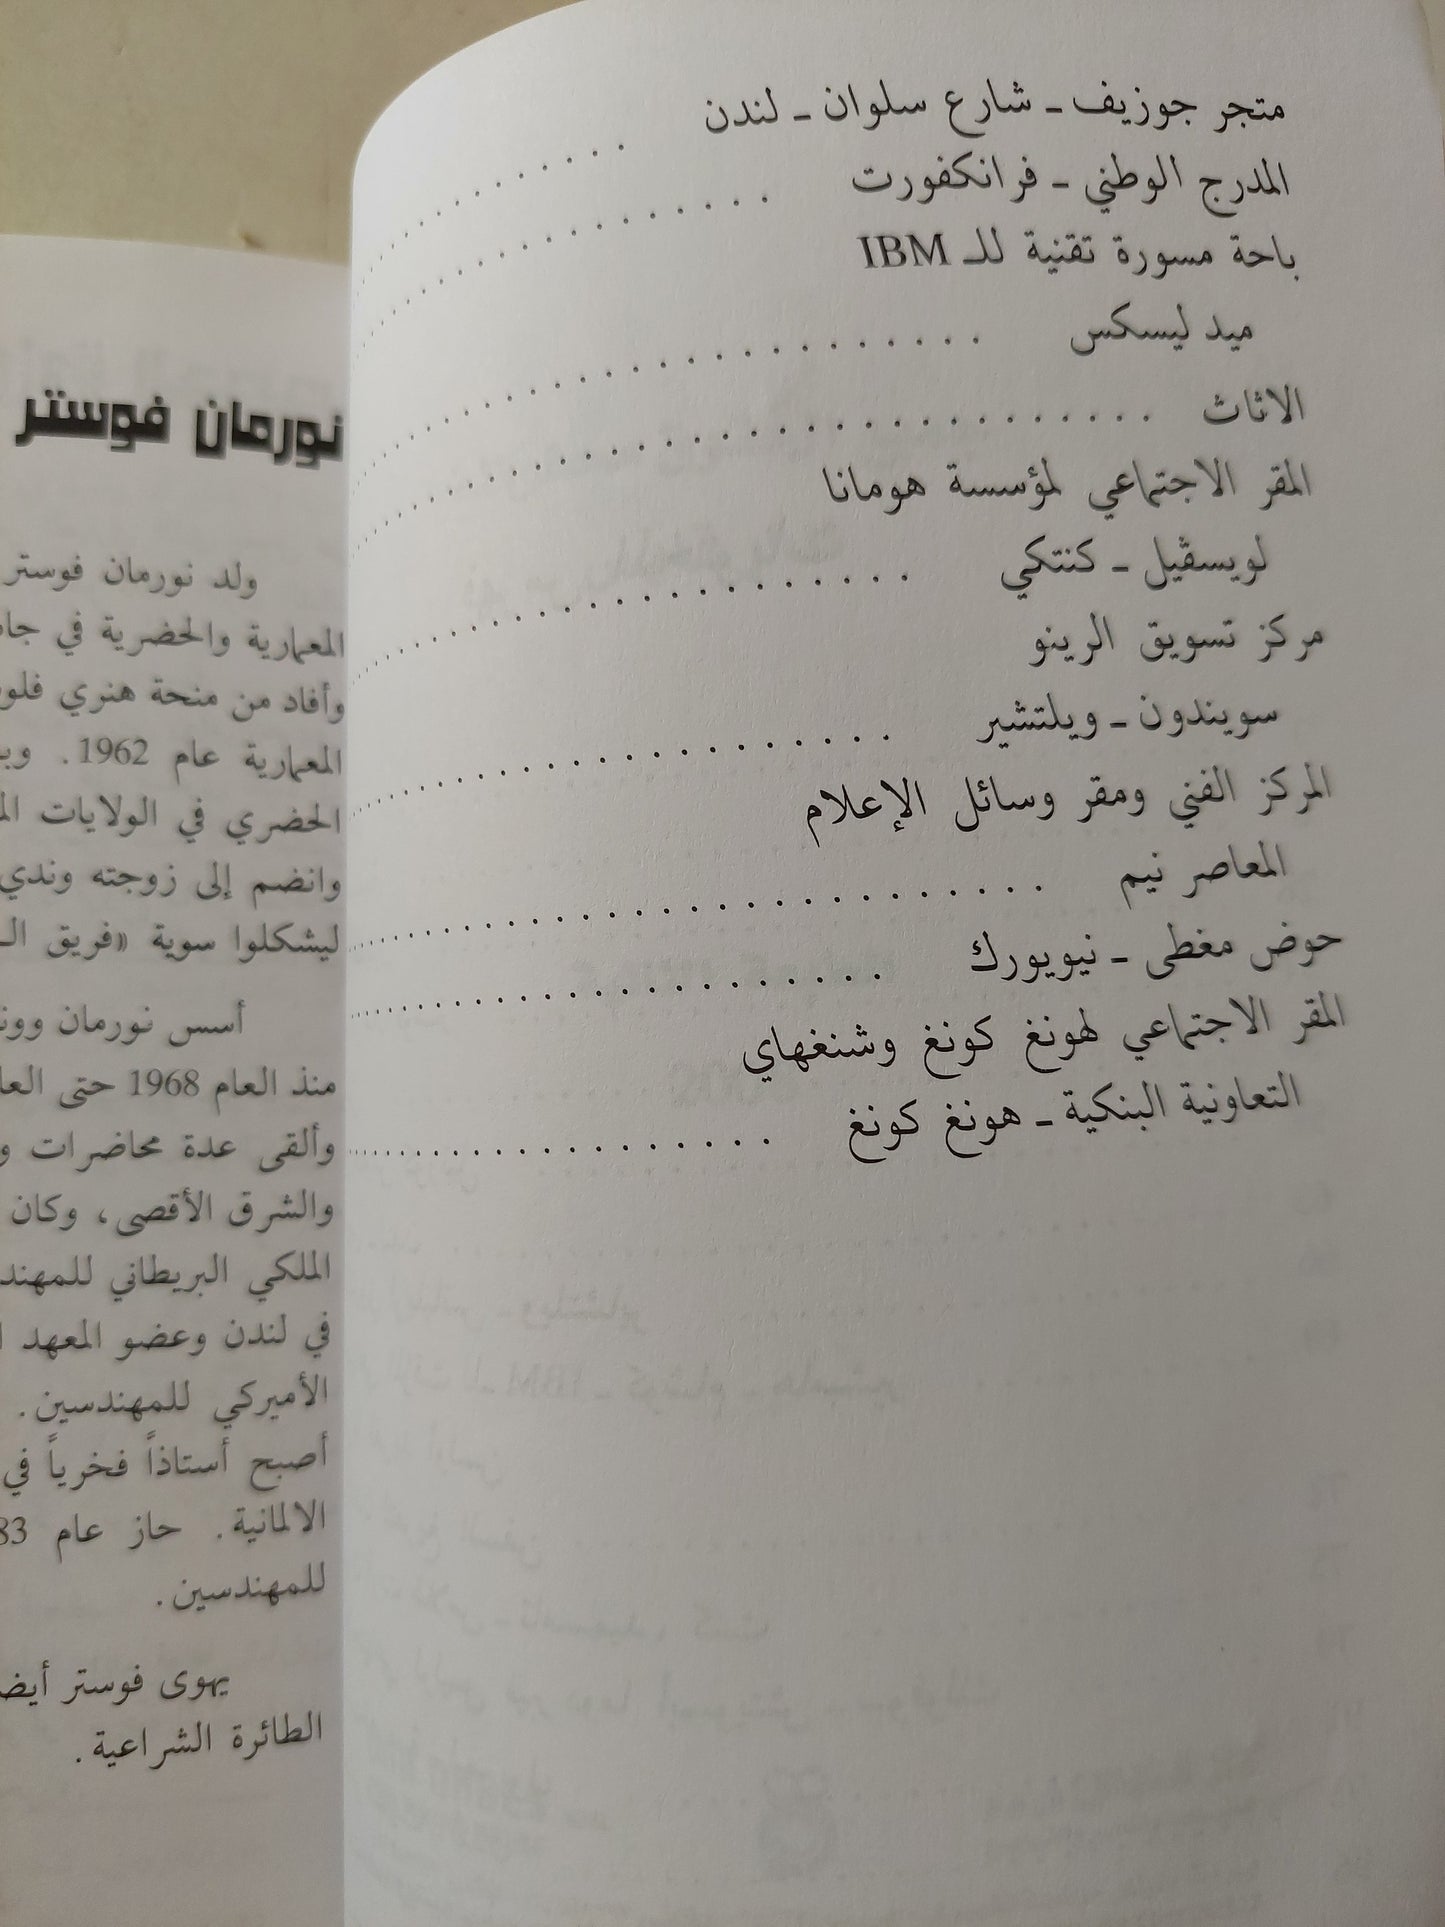 متجر جوزيف ـ شارع سلوان ـ لندن
المدرج الوطني ـ فرانكفورت
باحة مسورة تقنية للـ IBM
ميد ليسكس
الاثاث
المقر الاجتماعي لمؤسسة هومانا
لويسڤيل ـ كنتكي
مركز تسويق الرينو
سويندون ـ ويلتشير
المركز الفني ومقر وسائل الإعلام
المعاصر نيم
حوض مغطى ـ نيويورك
المقر الاجتماعي لهونغ كونغ وشنغهاي
التعاونية البنكية ـ هونغ كونغ
نورمان فوستر
ولد نورمان فوستر
المعمارية والحضرية في
وأفاد من منحة هنري
المعمارية عام 1962.
الحضري في الولايات
وانضم إلى زوجته وندي
ليشكلوا سوية «فريق
أسس نورمان
منذ العام 1968 حتى
وألقى عدة محاضرات
والشرق الأقصى، وكان
الملكي البريطاني
في لندن وعضو المعهد
الأميركي للمهندسين.
أصبح أستاذاً فخرياً في
الالمانية. حاز عام
للمهندسين.
يهوى فوستر
الطائرة الشراعية.